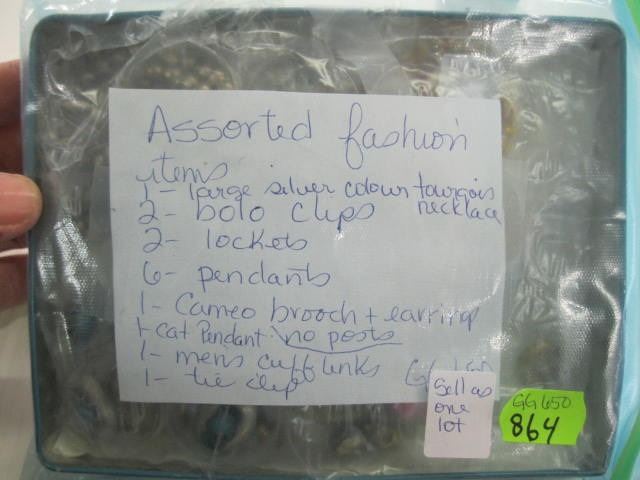 Assorted fashion
items
1- large silver colour tourqois
necklace
2- bolo clips
2- lockets
6- pendants
1- Cameo brooch + earring
1- cat Pendant no posts
1- mens cufflinks GG 650
1- tie clip
Sell as
one
lot
GG 650
864